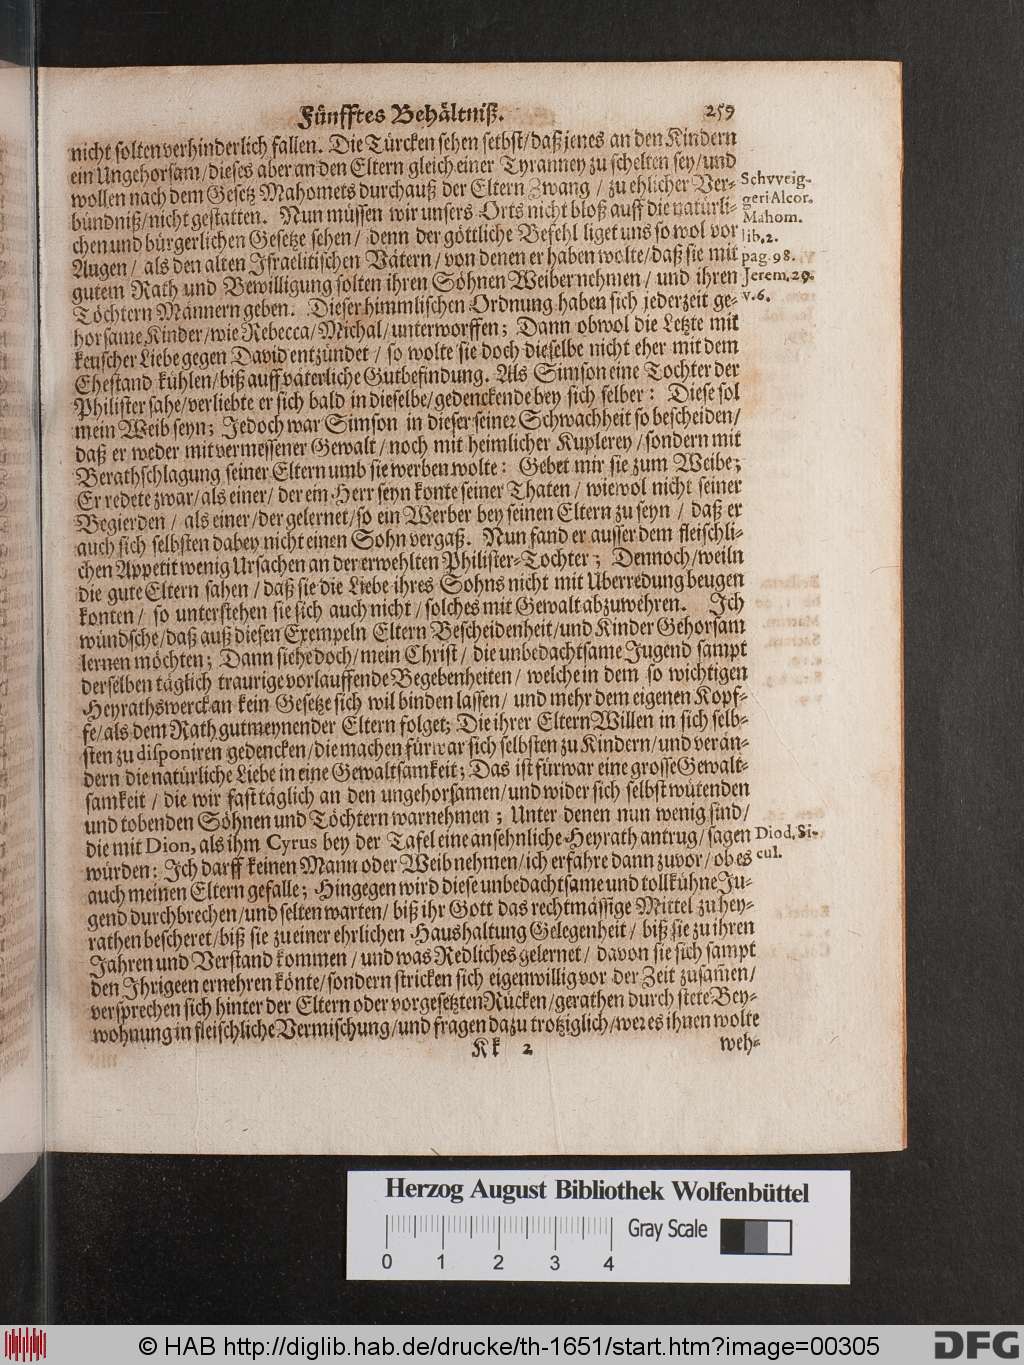 Fünfftes Behältniß. 259
nicht solten verhinderlich fallen. Die Türcken sehen selbst/ daß jenes an den Kindern
ein Ungehorsam/ dieses aber an den Eltern gleich einer Tyranney zu schelten sey/ und
wollen nach dem Gesetz Mahomets durchauß der Eltern Zwang / zu ehlicher Ver-
bündniß/ nicht gestatten. Nun müssen wir unsers Orts nicht bloß auff die natürli-
chen und bürgerlichen Gesetze sehen/ denn der göttliche Befehl liget uns so wol vor
Augen / als den alten Israelitischen Vätern / von denen er haben wolte/ daß sie mit
gutem Rath und Bewilligung solten ihren Söhnen Weiber nehmen / und ihren
Töchtern Männern geben. Dieser himmlischen Ordnung haben sich jederzeit ge-
horsame Kinder/ wie Rebecca/ Michal/ unterworffen; Dann obwol die Letzte mit
keuscher Liebe gegen David entzündet / so wolte sie doch dieselbe nicht eher mit dem
Ehestand kühlen/ biß auff väterliche Gutbefindung. Als Simson eine Tochter der
Philister sahe/ verliebte er sich bald in dieselbe/ gedenckende bey sich selber: Diese sol
mein Weib seyn; Jedoch war Simson in dieser seiner Schwachheit so bescheiden/
daß er weder mit vermessener Gewalt / noch mit heimlicher Kuplerey / sondern mit
Berathschlagung seiner Eltern umb sie werben wolte: Gebet mir sie zum Weibe;
Er redete zwar/ als einer/ der ein Herr seyn konte seiner Thaten / wiewol nicht seiner
Begierden / als einer/ der gelernet/ so ein Werber bey seinen Eltern zu seyn / daß er
auch sich selbsten dabey nicht einen Sohn vergaß. Nun fand er ausser dem fleischli-
chen Appetit wenig Ursachen an der erwehlten Philister-Tochter; Dennoch/ weiln
die gute Eltern sahen / daß sie die Liebe ihres Sohns nicht mit Uberredung beugen
konten / so unterstehen sie sich auch nicht / solches mit Gewalt abzuwehren. Ich
wündsche/ daß auß diesen Exempeln Eltern Bescheidenheit/ und Kinder Gehorsam
lernen möchten; Dann siehe doch/ mein Christ / die unbedachtsame Jugend sampt
derselben täglich traurige vorlauffende Begebenheiten / welche in dem so wichtigen
Heyrathswerck an kein Gesetze sich wil binden lassen / und mehr dem eigenen Kopf-
fe/ als dem Rath gutmeynender Eltern folget; Die ihrer Eltern Willen in sich selb-
sten zu disponiren gedencken/ die machen fürwar sich selbsten zu Kindern/ und verän-
dern die natürliche Liebe in eine Gewaltsamkeit; Das ist fürwar eine grosse Gewalt-
samkeit / die wir fast täglich an den ungehorsamen/ und wider sich selbst wütenden
und tobenden Söhnen und Töchtern warnehmen; Unter denen nun wenig sind/
die mit Dion, als ihm Cyrus bey der Tafel eine ansehnliche Heyrath antrug/ sagen
würden: Ich darff keinen Mann oder Weib nehmen/ ich erfahre dann zuvor/ ob es
auch meinen Eltern gefalle; Hingegen wird diese unbedachtsame und tollkühne Ju-
gend durchbrechen/ und selten warten/ biß ihr Gott das rechtmässige Mittel zu hey-
rathen bescheret/ biß sie zu einer ehrlichen Haushaltung Gelegenheit / biß sie zu ihren
Jahren und Verstand kommen / und was Redliches gelernet / davon sie sich sampt
den Ihrigeen ernehren könte/ sondern stricken sich eigenwillig vor der Zeit zusam̄en/
versprechen sich hinter der Eltern oder vorgesetzten Rücken/ gerathen durch stete Bey-
wohnung in fleischliche Vermischung/ und fragen dazu trotziglich/ wer es ihnen wolte
Kk 2 weh-
Schvveig-
geri Alcor.
Mahom.
lib. 2.
pag. 98.
Jerem. 29.
v. 6.
Diod. Si-
cul.
Herzog August Bibliothek Wolfenbüttel
0 1 2 3 4
Gray Scale
© HAB http://diglib.hab.de/drucke/th-1651/start.htm?image=00305
DFG